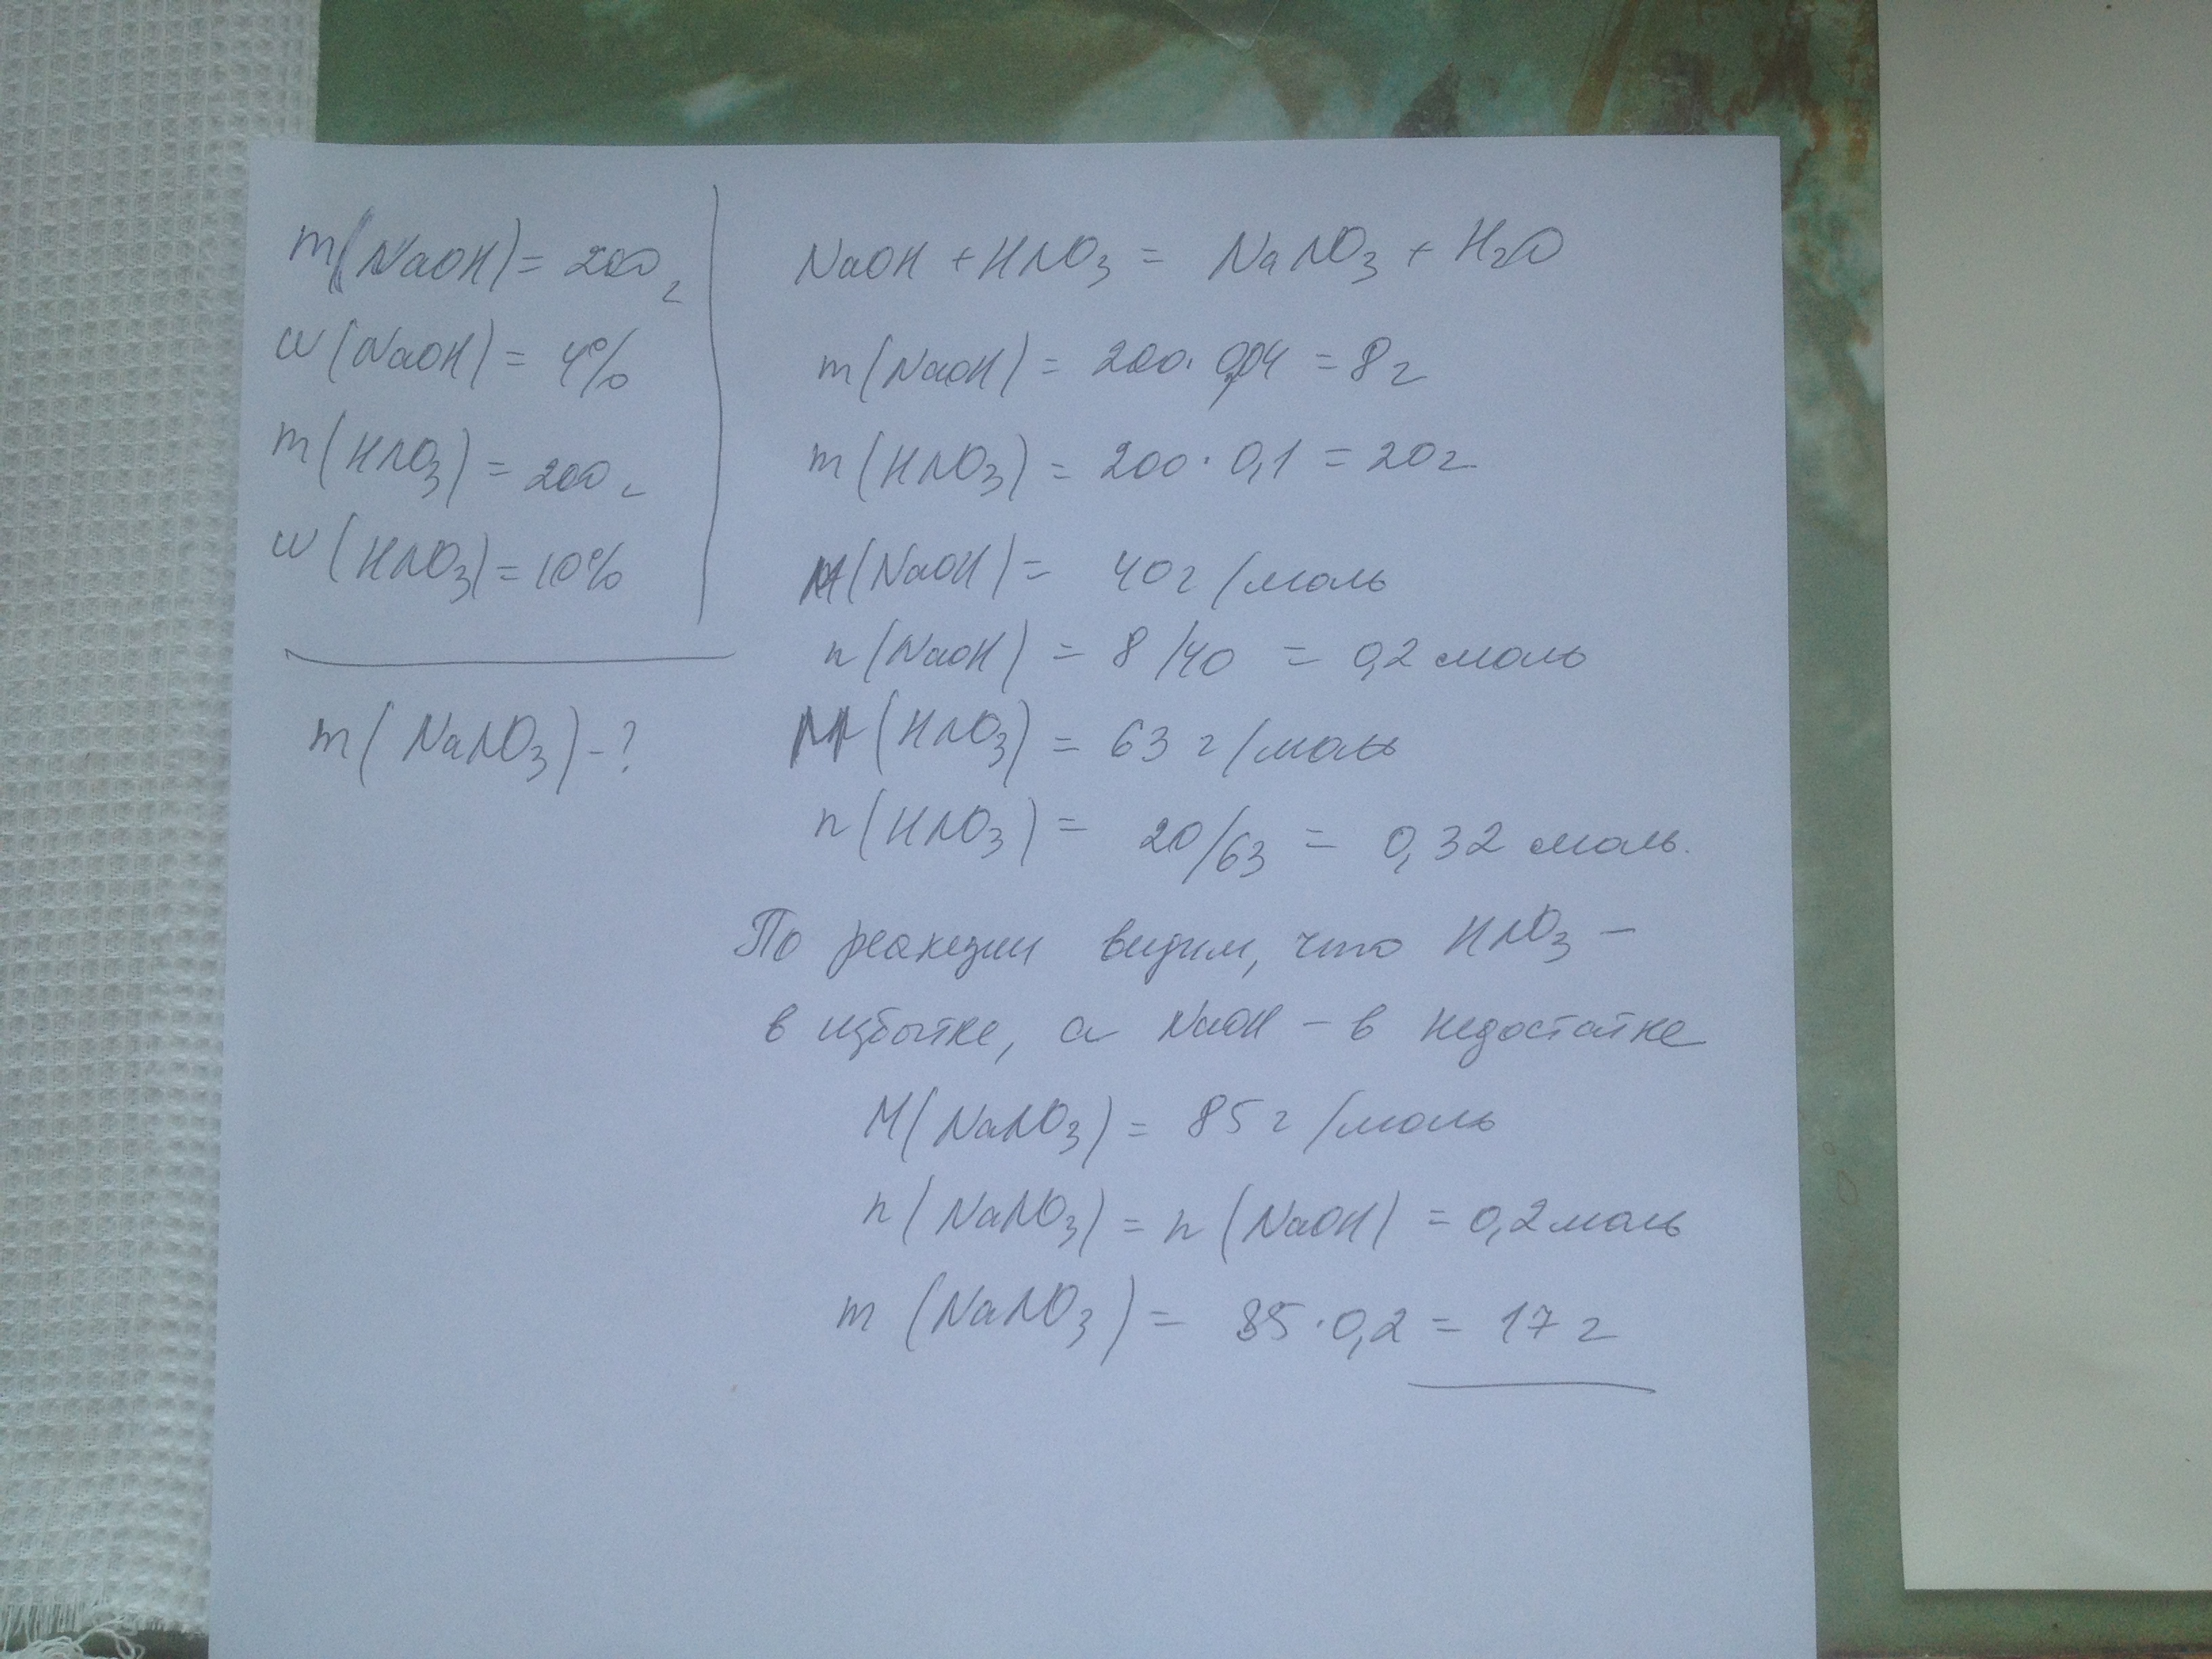 m(NaOH) = 200 г
w(NaOH) = 4%
m(HNO₃) = 200 г
w(HNO₃) = 10%
m(NaNO₃) - ?
NaOH + HNO₃ = NaNO₃ + H₂O
m(NaOH) = 200 · 0,04 = 8 г
m(HNO₃) = 200 · 0,1 = 20 г
M(NaOH) = 40 г/моль
n(NaOH) = 8/40 = 0,2 моль
M(HNO₃) = 63 г/моль
n(HNO₃) = 20/63 = 0,32 моль.
По реакции видим, что HNO₃ –
в избытке, а NaOH – в недостатке
M(NaNO₃) = 85 г/моль
n(NaNO₃) = n(NaOH) = 0,2 моль
m(NaNO₃) = 85 · 0,2 = 17 г